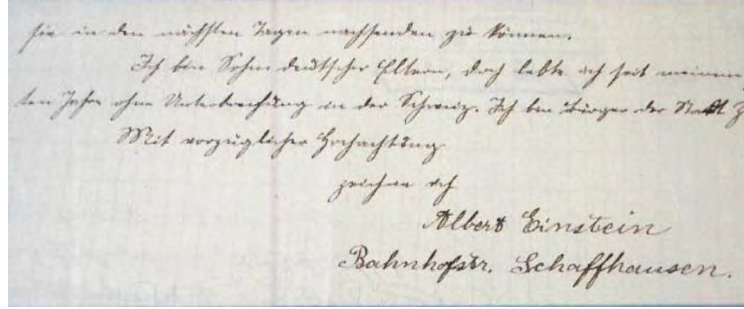 sie in den nächsten Tagen nachsenden zu können.
Ich bin Sohn deutscher Eltern, doch lebte ich seit meinem
ten Jahre ohne Unterbrechung in der Schweiz. Ich bin Bürger der Stadt Z
Mit vorzüglicher Hochachtung
zeichne ich
Albert Einstein
Bahnhofstr. Schaffhausen.